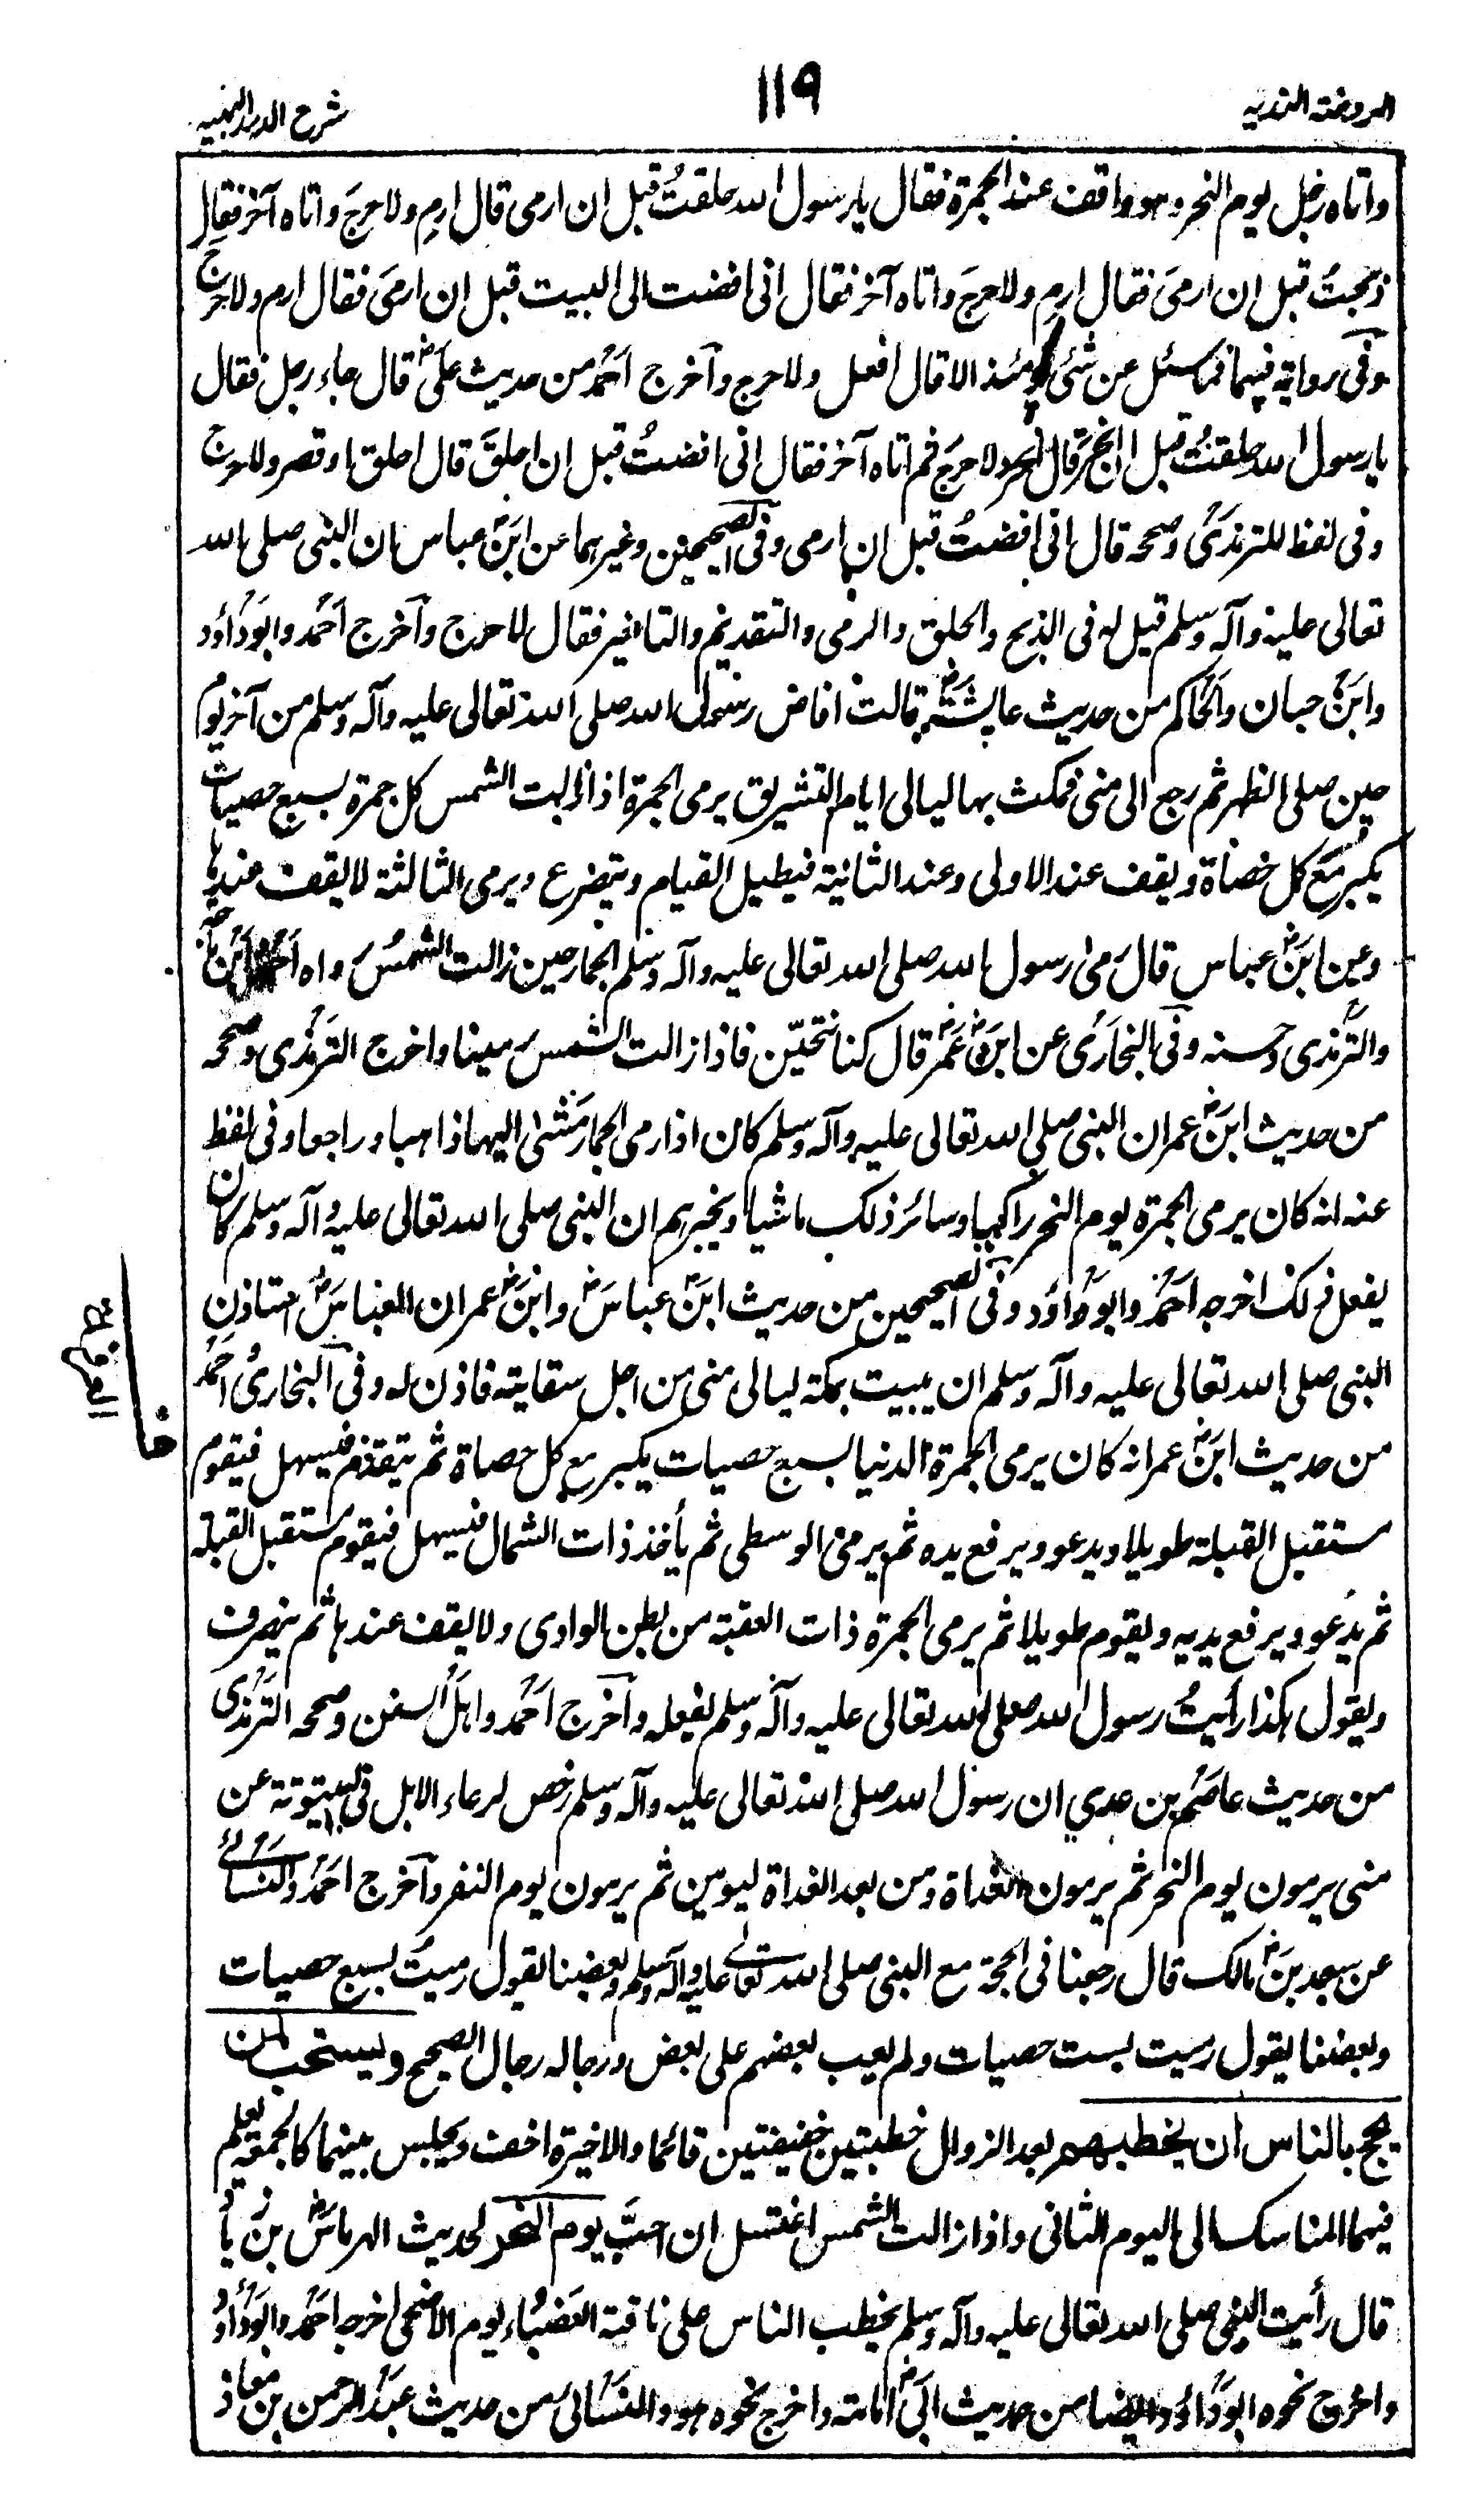 الروضة الندية
١١٩
شرح الدرر البهية
واتاه رجل يوم النحر وهو واقف عند الجمرة فقال يا رسول الله حلقتُ قبل ان ارمى قال ارمِ ولا حرجَ واتاه آخر فقال
ذبحتُ قبل ان ارمىَ فقال ارمِ ولا حرجَ واتاه آخر فقال انى افضت الى البيت قبل ان ارمىَ فقال ارم ولا حرج
وفى رواية فيهما فما سئل عن شئ يومئذ الا قال افعل ولا حرج وآخرج احمد من حديث علىّ قال جاء رجل فقال
يا رسول الله حلقتُ قبل ان انحرَ قال انحر ولا حرجَ ثم اتاه آخر فقال انى افضتُ قبل ان احلقَ قال احلق او قصر ولا حرج
وفى لفظ للترمذى وصححه قال انى افضتُ قبل ان ارمى وفى الصحيحين وغيرهما عن ابن عباس ان النبى صلى الله
تعالى عليه وآله وسلم قيل له فى الذبح والحلق والرمى والتقديم والتاخير فقال لا حرج وآخرج احمد وابو داؤد
وابن حبان والحاكم من حديث عايشة قالت افاض رسول الله صلى الله تعالى عليه وآله وسلم من آخر يوم
حين صلى الظهر ثم رجع الى منى فمكث بها ليالى ايام التشريق يرمى الجمرة اذا زالت الشمس كل جمرة بسبع حصيات
يكبر مع كل حصاة ويقف عند الاولى وعند الثانية فيطيل القيام ويتضرع ويرمى الثالثة لا يقف عندها
وعن ابن عباس قال رمى رسول الله صلى الله تعالى عليه وآله وسلم الجمار حين زالت الشمس رواه احمد وابن ماجه
والترمذى وحسنه وفى البخارى عن ابن عمر قال كنا نتحيّن فاذا زالت الشمس رمينا واخرج الترمذى وصححه
من حديث ابن عمر ان النبى صلى الله تعالى عليه وآله وسلم كان اذا رمى الجمار مشى اليها ذاهبا وراجعا وفى لفظ
عنه انه كان يرمى الجمرة يوم النحر راكبا وسائر ذلك ماشيا ويخبرهم ان النبى صلى الله تعالى عليه وآله وسلم كان
يفعل ذلك اخرجه احمد وابو داؤد وفى الصحيحين من حديث ابن عباس وابن عمر ان العباس استاذن
النبى صلى الله تعالى عليه وآله وسلم ان يبيت بمكة ليالى منى من اجل سقايته فاذن له وفى البخارى احمد
من حديث ابن عمر انه كان يرمى الجمرة الدنيا بسبع حصيات يكبر مع كل حصاة ثم يتقدم فيسهل فيقوم
مستقبل القبلة طويلا ويدعو ويرفع يده ثم يرمى الوسطى ثم يأخذ ذات الشمال فيسهل فيقوم مستقبل القبلة
ثم يدعو ويرفع يديه ويقوم طويلا ثم يرمى الجمرة ذات العقبة من بطن الوادى ولا يقف عندها ثم ينصرف
ويقول هكذا رأيتُ رسول الله صلى الله تعالى عليه وآله وسلم يفعله وآخرج احمد واهل السنن وصححه الترمذى
من حديث عاصم بن عدي ان رسول الله صلى الله تعالى عليه وآله وسلم رخص لرعاء الابل فى البيتوتة عن
منى يرمون يوم النحر ثم يرمون الغداة ومن بعد الغداة ليومين ثم يرمون يوم النفر وآخرج احمد والنسائى
عن سعد بن مالك قال رجعنا فى الحجة مع النبى صلى الله تعالى عليه وآله وسلم وبعضنا يقول رميتُ بسبع حصيات
وبعضنا يقول رميت بست حصيات ولم يعب بعضهم على بعض ورجاله رجال الصحيح ويستحب لمن
يحج بالناس ان يخطبهم بعد الزوال خطبتين خفيفتين قائما والاخيرة اخف ويجلس بينهما كالجمعة يعلم
فيهما المناسك الى اليوم الثانى واذا زالت الشمس اغتسل ان احبَّ يوم النحر لحديث الهرماس بن زياد
قال رأيت النبى صلى الله تعالى عليه وآله وسلم يخطب الناس على ناقته العضباء يوم الاضحى اخرجه احمد وابو داؤد
واخرج نحوه ابو داؤد ايضا من حديث ابى امامة واخرج نحوه هو والنسائى من حديث عبد الرحمن بن معاذ